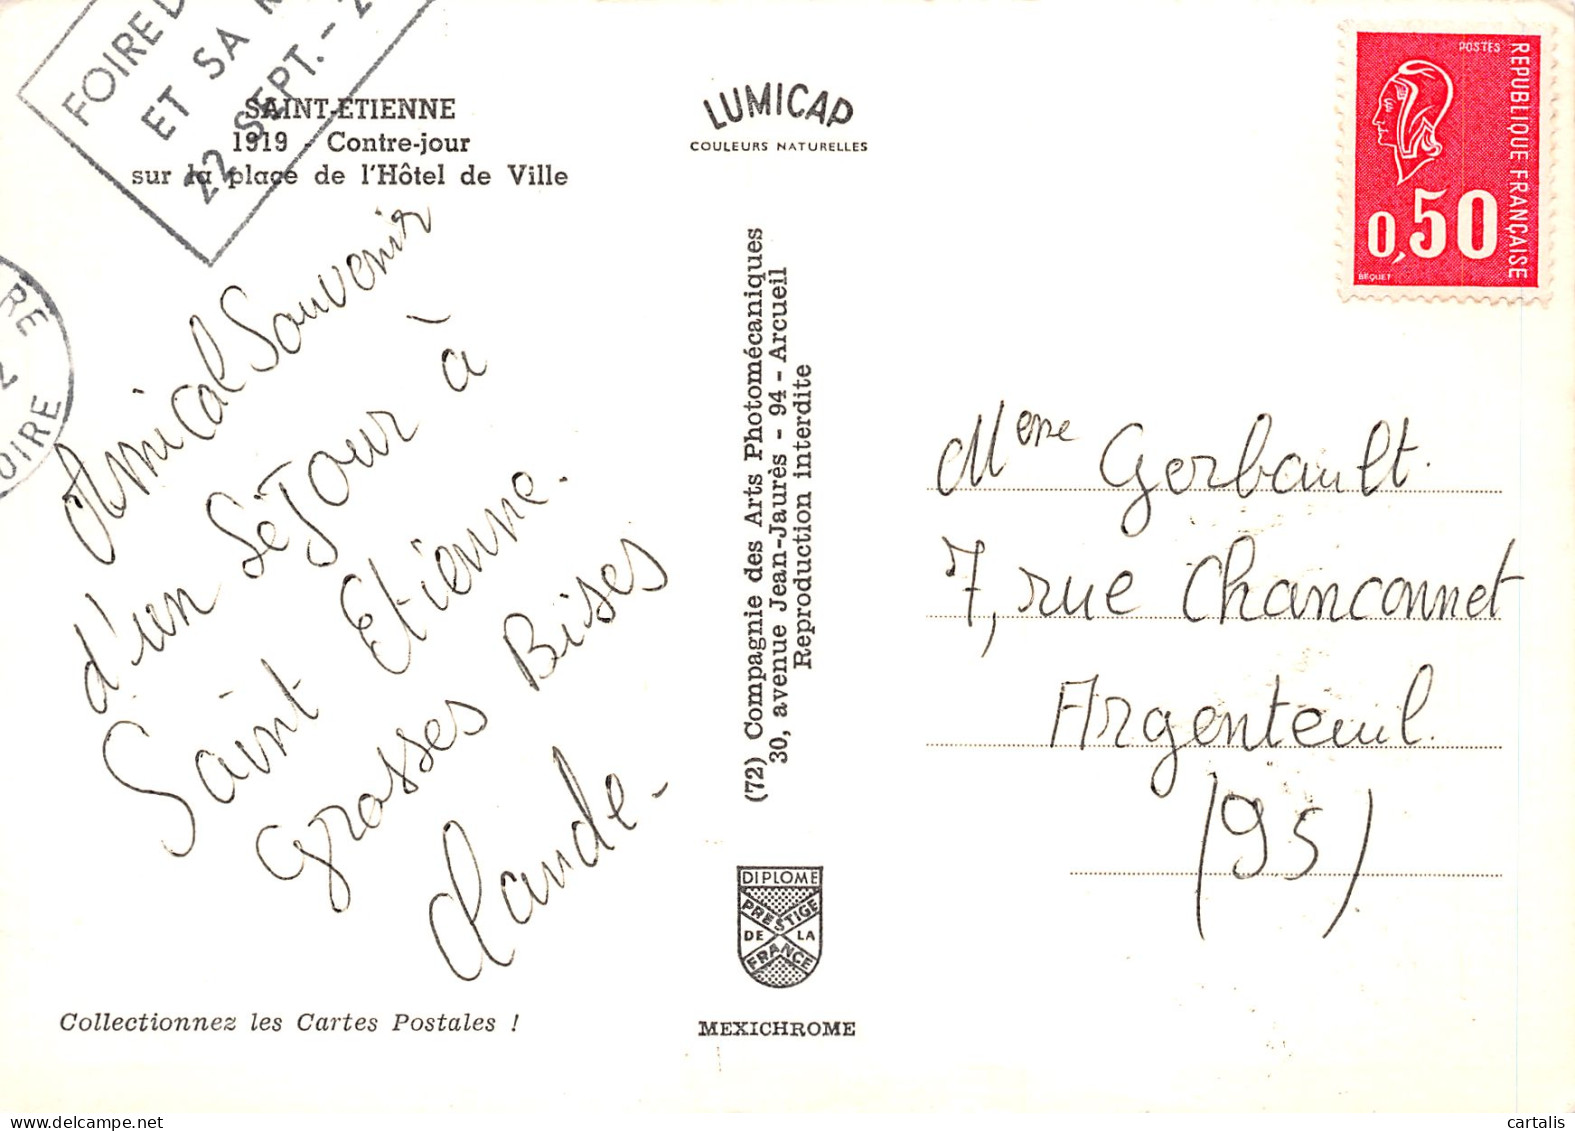 FOIRE D
ET SA R
22 SEPT. - 2
SAINT-ETIENNE
1919 - Contre-jour
sur la place de l'Hôtel de Ville
RE
2
OIRE
Amical Souvenir
d'un Séjour à
Saint Etienne.
Grosses Bises
Claude.
Collectionnez les Cartes Postales !
LUMICAP
COULEURS NATURELLES
(72) Compagnie des Arts Photomécaniques
30, avenue Jean-Jaurès - 94 - Arcueil
Reproduction interdite
DIPLOME
PRESTIGE
DE LA
FRANCE
MEXICHROME
POSTES
REPUBLIQUE FRANÇAISE
0,50
BEQUET
Mme Gerbault.
7, rue Chanconnet
Argenteuil.
(95)
cartalis